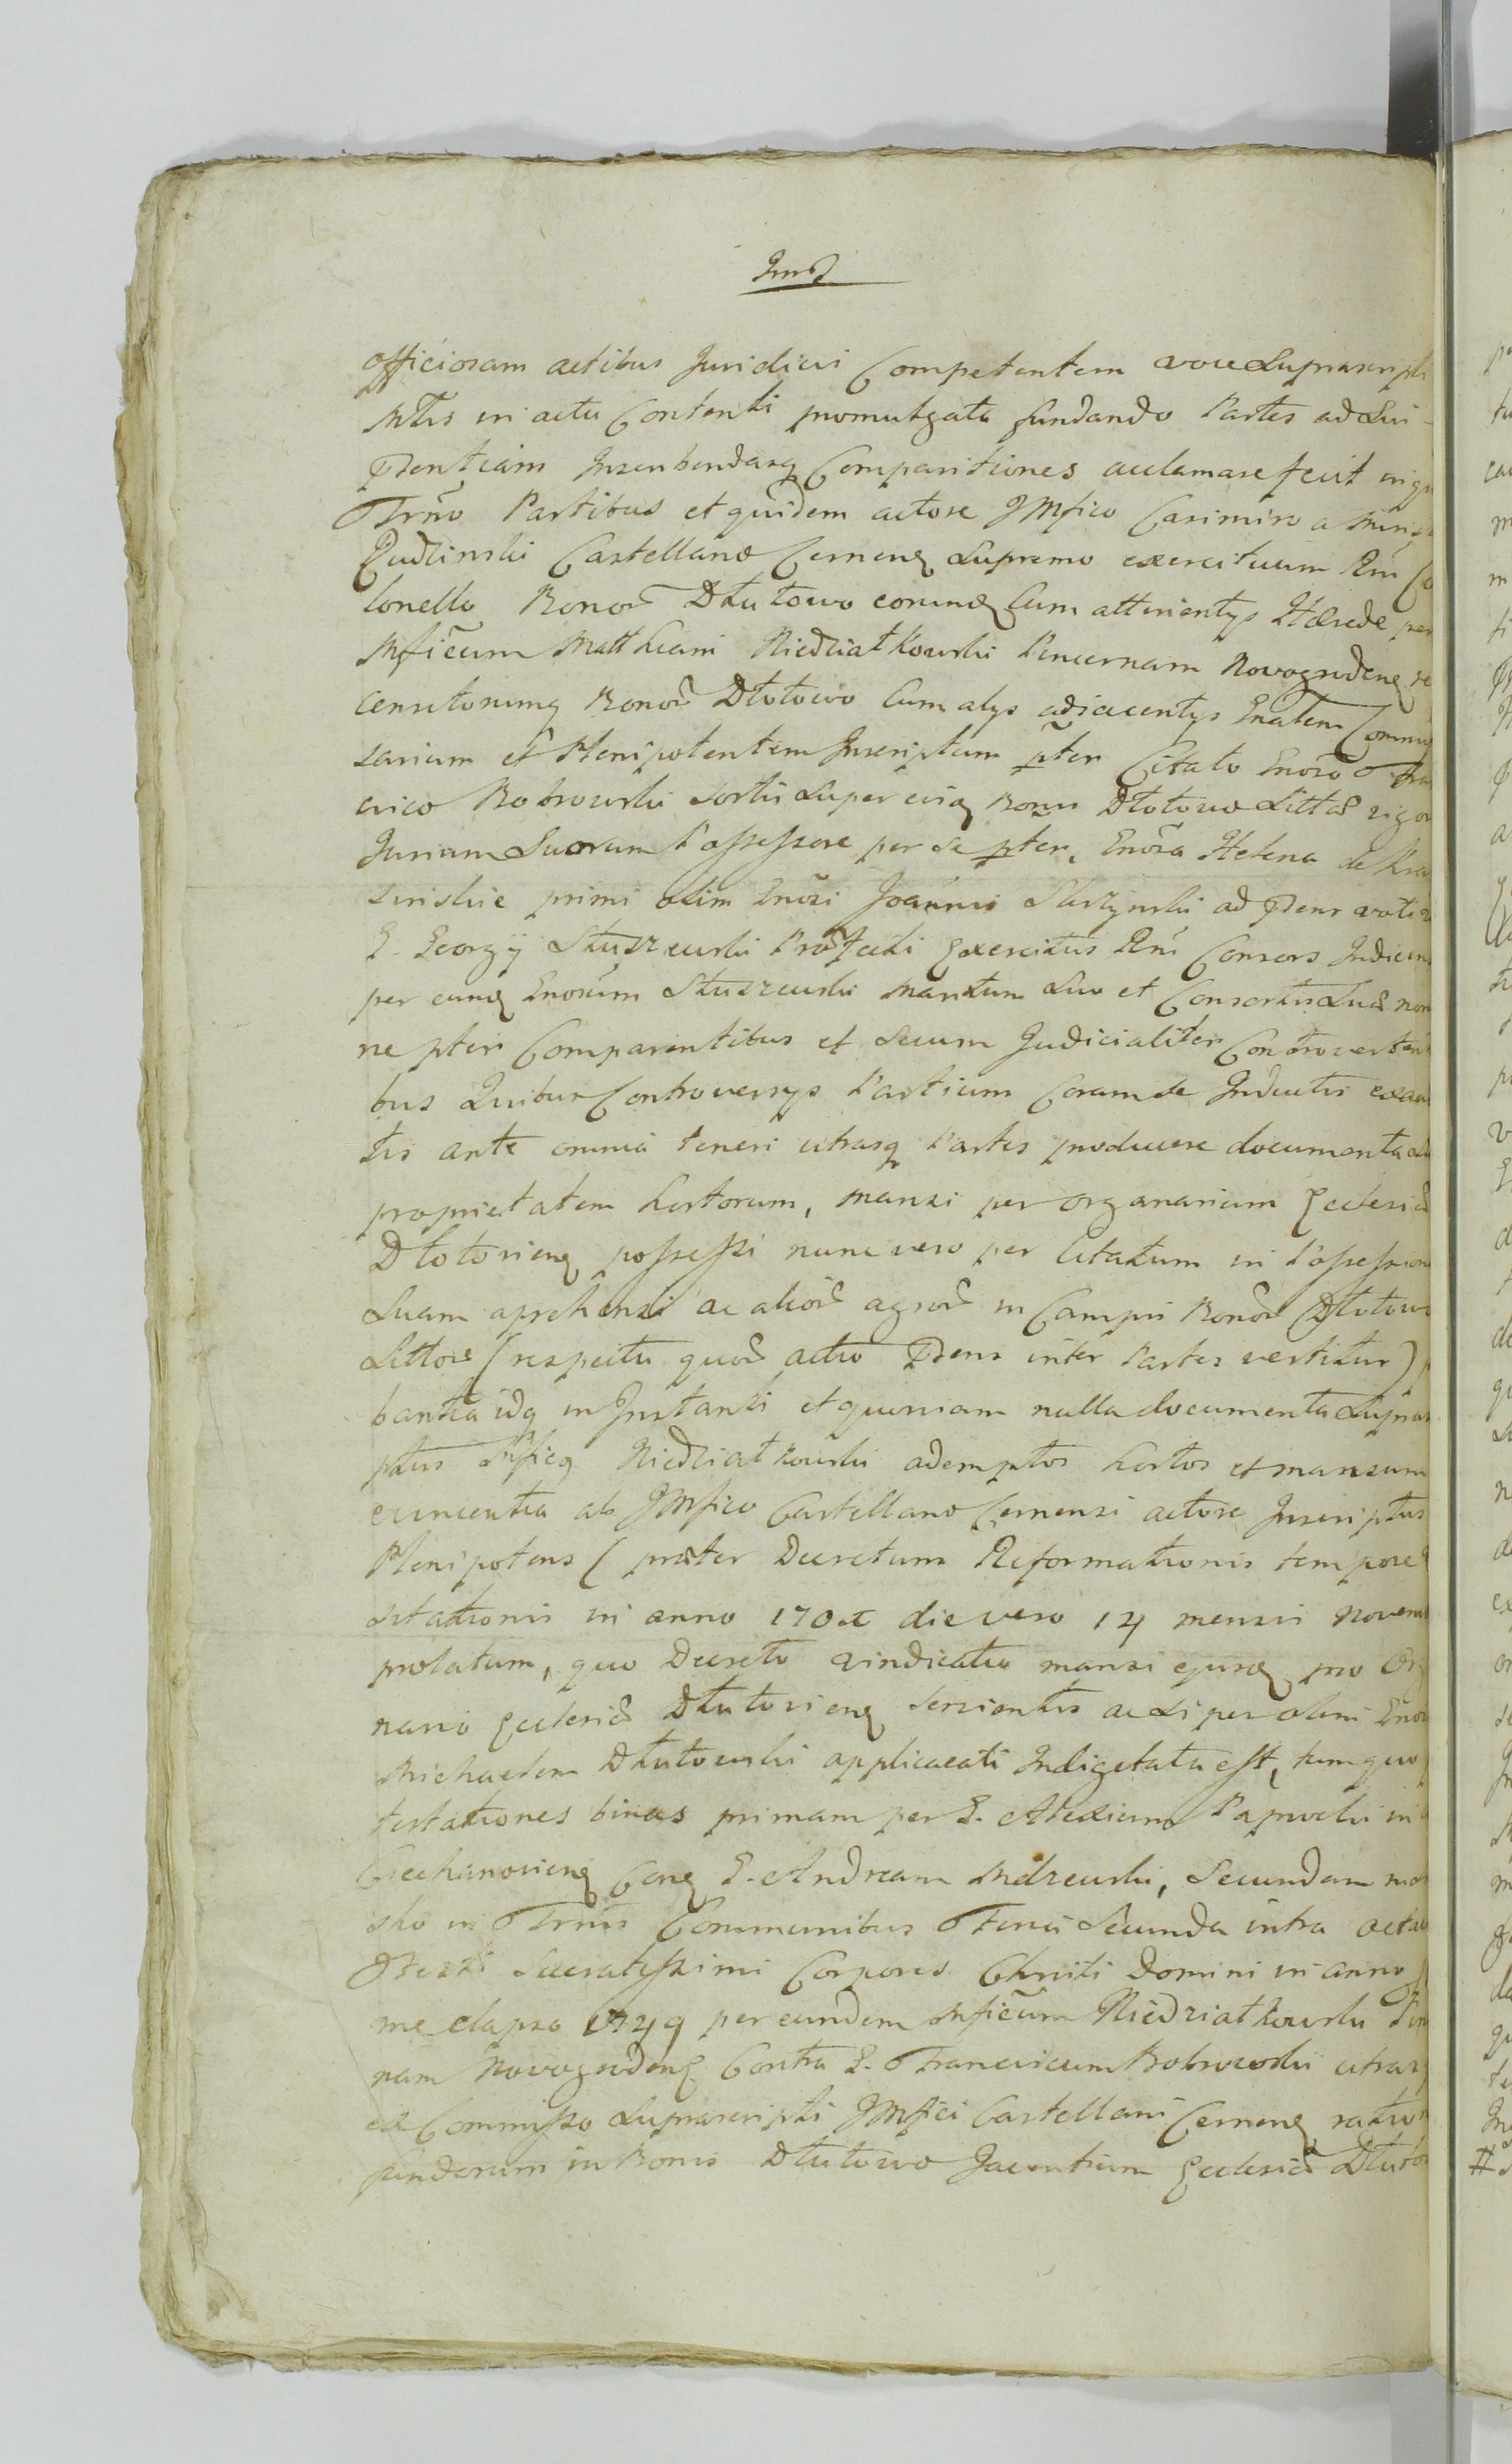 officiosam actibus Juridicis Competentem voce Suprascripti
Mtris in actu Contenti promulgata fundando Partes ad Sui
Pdentiam Inscribendasq Comparitiones acclamare fecit in quo
Trno Partibus et quidem actore JMfico Casimiro a
Rudzinski Castellano Cernenq Supremo exercituum Rni Co
lonello Bonor Dłutowo eorumq Cum attinentys Hærede per
Mficum Mattheum Niedziałkowski Pincernam Novogrodenq se
censitorumq Bonor Dłotowo Cum alys adjacentys Gnalem Commis
sarium et Plenipotentem Inscriptum pter Citato Gnoso Fran
cisco Bobrowski sortis Super cuiq Bonis Dłotowo Sittæ vigor
Jurium Suorum Possessore per se pter, Gnosa Helena de Kra
sinskie primi olim Gnosi Joannis Skrzynski ad Pdens voti
G. Georgij Stuszewski Præfecti Exercitus Rni Consors Judicium
per eumq Gnosum Stuszewski Maritum Suo et Consortis Suæ nomi
ne pter Comparentibus et Secum Judicialiter Controverten
bus Quibus Controversys Partium Coram se Inductis exau
tis ante omnia teneri utrasq Partes producere documenta
proprietatem hortorum, mansi per organarium Ecclesiæ
Dłotovienq possessi nunc vero per Citatum in Possession
Suam aprehensi ac alior agror in Campis Bonor Dłutow
Sittor (respectu quor actio Pdens inter Partes vertitur)
bantia idq in Instanti et quoniam nulla documenta Supras
ptus Mficq Niedziałkowski ademptos hortos et mansum
evincentia ab JMfico Castellano Cernensi actore Inscriptus
Plenipotens (præter Decretum Reformationis tempore
sitationis in anno die vero 14 mensis Novem
prolatum, quo Decreto vindicatio mansi ejusq pro Org
nario Ecclesiæ Dłutovienq servientis ac Si per olim Gnos
Michaelem Dłutowski applicacati Indigetata est, tum quo
testationes binas primam per G. Alexium Paprocki in
Ciechanovienq Conq G. Andream Mdzewski, Secundam mo
sko in Trnis Communibus Feria Secunda intra octav
Festi Sacratissimi Corporis Christi Domini in anno
me elapso 1749 per eundem Mficum Niedziałkowski Pin
nam Novogrodenq Contra G. Franciscum Bobrowski utras
ex Commisso Suprascripti JMfici Castellani Cernenq ratio
fundorum in Bonis Dłutowo Jacentium Ecclesiæ Dłuto